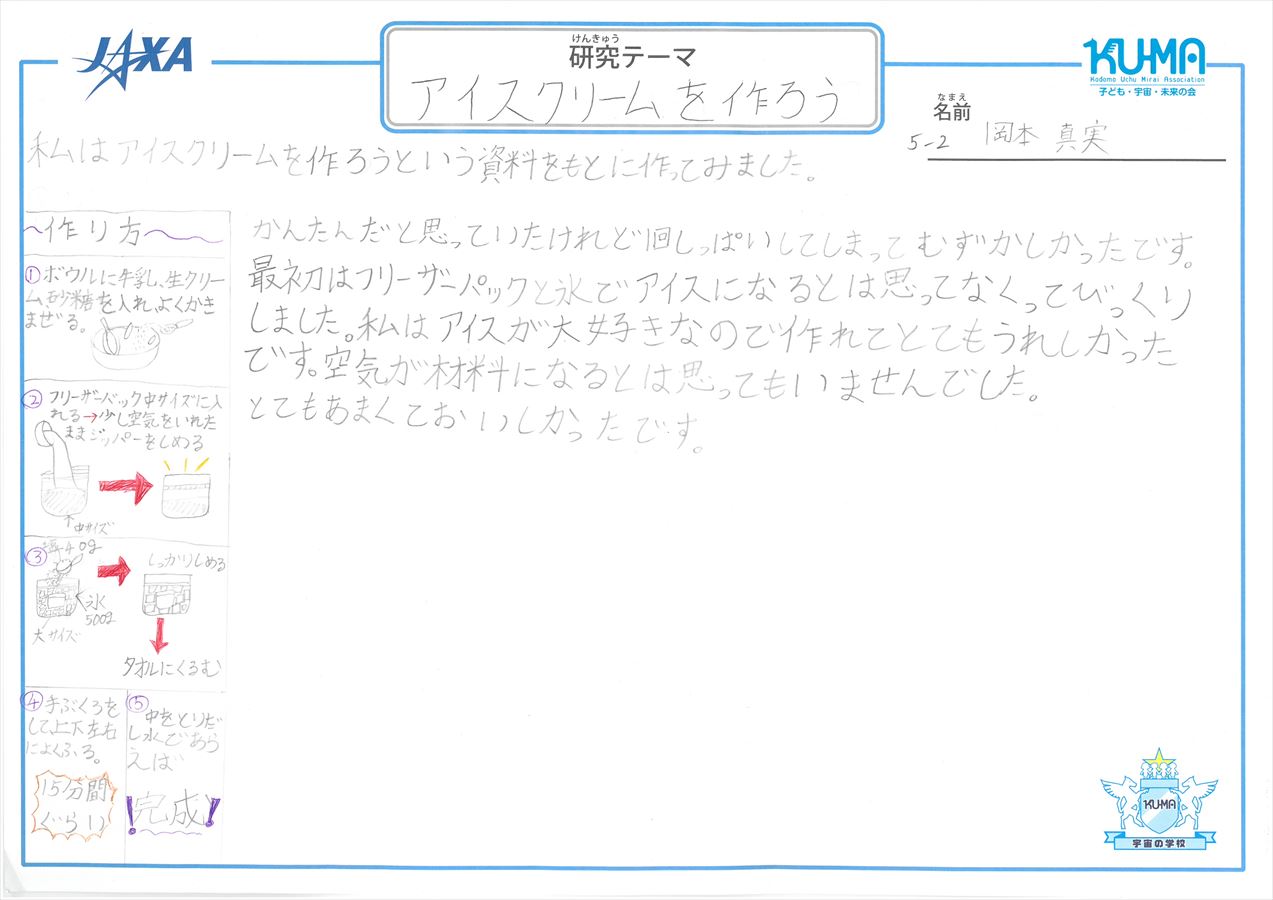 JAXA
けんきゅう
研究テーマ
アイスクリームを作ろう
KUMA
Kodomo Uchu Mirai Association
子ども・宇宙・未来の会
なまえ
名前
5-2 岡本 真実
私はアイスクリームを作ろうという資料をもとに作ってみました。
〜作り方〜
①ボウルに牛乳、生クリー
ム、砂糖を入れ、よくかき
まぜる。
②フリーザーバック中サイズに入
れる→少し空気をいれた
ままジッパーをしめる
↑中サイズ
③塩40g
しっかりしめる
氷
500g
大サイズ
タオルにくるむ
④手ぶくろを
して、上下左右
によくふる。
15分間
ぐらい
⑤
中をとりだ
し水であら
えば
!完成!
かんたんだと思っていたけれど1回しっぱいしてしまってむずかしかったです。
最初はフリーザーパックと氷でアイスになるとは思ってなくってびっくり
しました。私はアイスが大好きなので作れてとてもうれしかった
です。空気が材料になるとは思ってもいませんでした。
とてもあまくておいしかったです。
KUMA
宇宙の学校